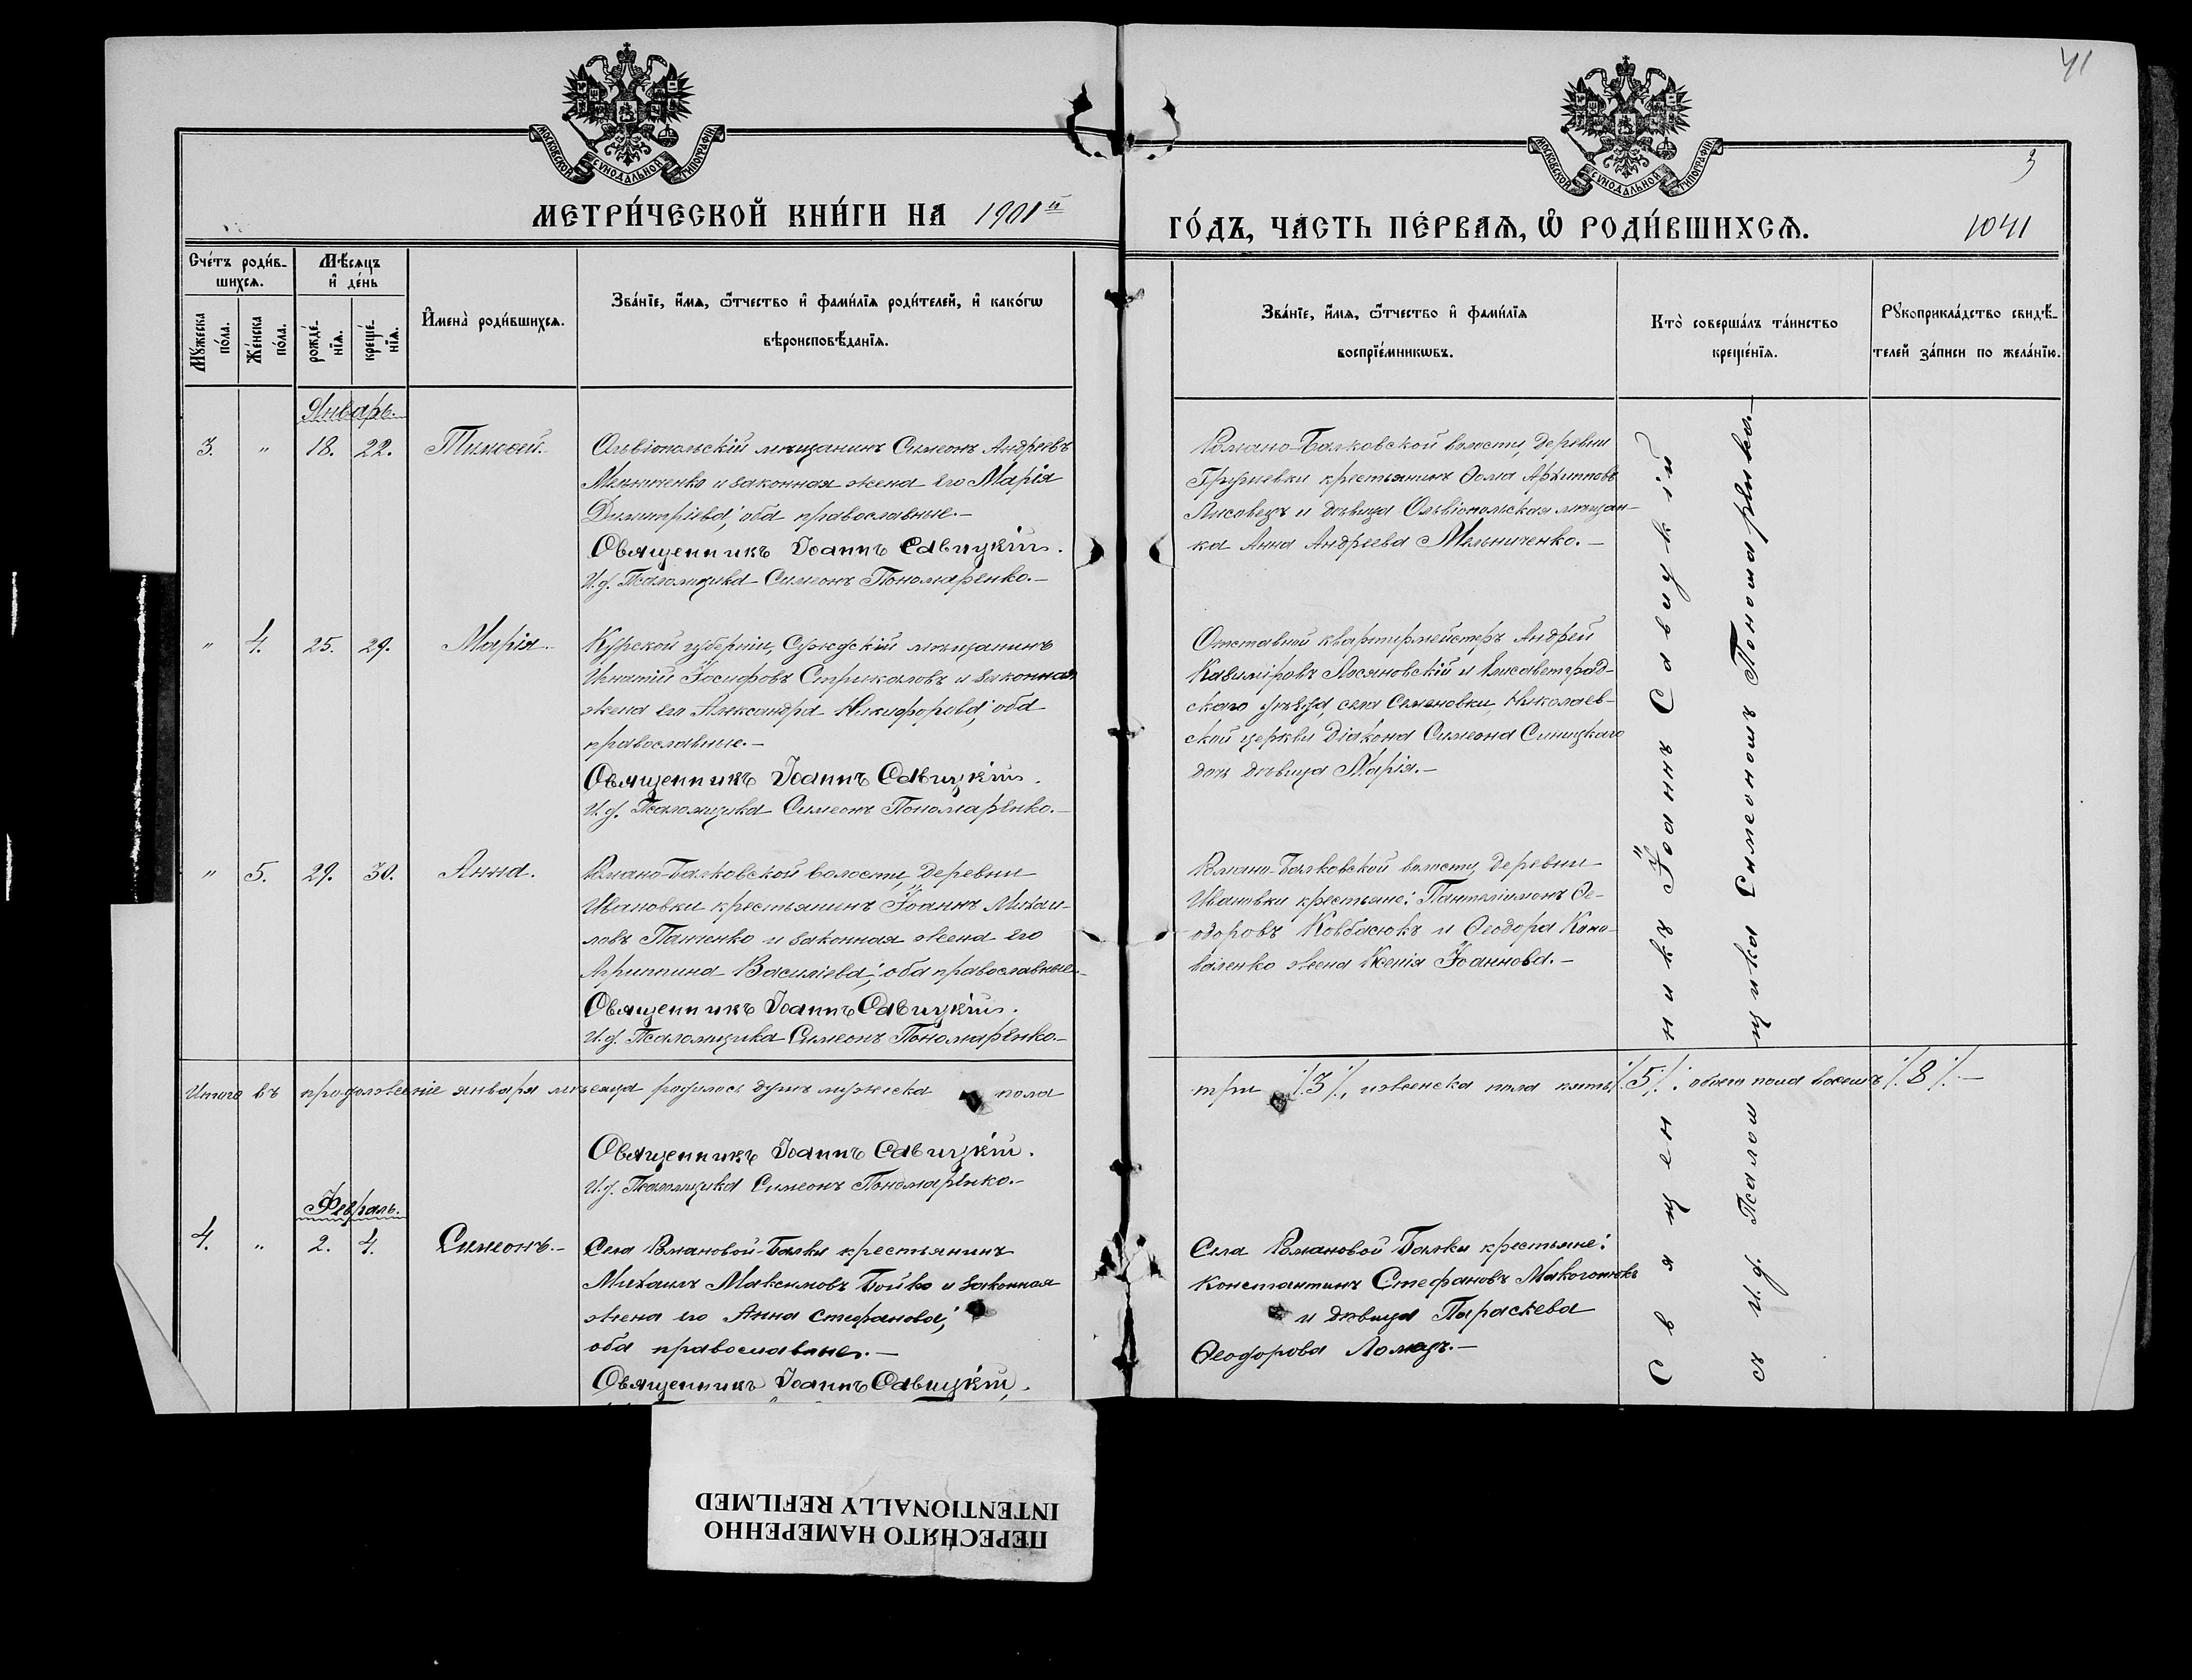 41
МОСКОВСКОЙ СУНОДАЛЬНОЙ ТИПОГРАФІИ
МОСКОВСКОЙ СУНОДАЛЬНОЙ ТИПОГРАФІИ
3
МЕТРИ́ЧЕСКОЙ КНИ́ГИ НА 1901й
ГО́ДЪ, ЧА́СТЬ ПЕ́РВАѦ, Ѡ҆ РОДИ́ВШИХСѦ. 1041
Сче́тъ роди́в-
шихсѧ.
Мꙋ́жеска по́ла.
Же́нска по́ла.
Мѣ́сѧцъ
и҆ де́нь
рожде́-
нїѧ.
креще́-
нїѧ.
И҆мена̀ роди́вшихсѧ.
Зва́нїе, и҆́мѧ, ѻ҆́тчество и҆ фами́лїѧ роди́телей, и҆ како́гѡ
вѣроисповѣ́данїѧ.
Зва́нїе, и҆́мѧ, ѻ҆́тчество и҆ фами́лїѧ
воспрїе́мникѡвъ.
Кто̀ соверша́лъ та́инство
креще́нїѧ.
Рꙋкоприкла́дство свидѣ́-
телей за́писи по жела́нїю.
Январь.
3. " 18. 22. Тимоѳей.
Ольвіопольскій мѣщанинъ Симеонъ Андреевъ
Мельниченко и законная жена его Марія
Димитріева; оба православные.-
Священникъ Іоаннъ Савицкій.
И.д. Псаломщика Симеонъ Пономаренко.-
Романо-Балковской волости, деревни
Грушевки крестьянинъ Ѳома Архипповъ
Лисовецъ и дѣвица Ольвіопольская мѣщан-
ка Анна Андреева Мельниченко.-
" 4. 25. 29. Марія.
Курской губерніи, Суджскій мѣщанинъ
Игнатій Іосифовъ Стрикаловъ и законная
жена его Александра Никифорова; оба
православные.-
Священникъ Іоаннъ Савицкій.
И.д. Псаломщика Симеонъ Пономаренко.-
Отставной квартирмейстеръ Андрей
Казиміровъ Лясяновскій и Елисаветград-
скаго уѣзда, села Семеновки, Николаев-
ской церкви діакона Симеона Синицкаго
дочь дѣвица Марія.-
" 5. 29. 30. Анна.
Романо-Балковской волости, деревни
Ивановки крестьянинъ Іоаннъ Михаи-
ловъ Панченко и законная жена его
Агриппина Василіева; оба православные.-
Священникъ Іоаннъ Савицкій.
И.д. Псаломщика Симеонъ Пономаренко.-
Романо-Балковской волости, деревни
Ивановки крестьяне: Пантелеимонъ Ѳе-
одоровъ Ковбасюкъ и Ѳеодора Коно-
валенко жена Ксенія Іоаннова.-
Итого въ продолженіе января мѣсяца родилось душъ мужеска пола
три /3/, женска пола пять /5/. обоего пола восемь /8/.-
Священникъ Іоаннъ Савицкій.
И.д. Псаломщика Симеонъ Пономаренко.-
Февраль.
4. " 2. 4. Симеонъ.-
Села Романовой-Балки крестьянинъ
Михаилъ Максимовъ Бойко и законная
жена его Анна Стефанова;
оба православные.-
Священникъ Іоаннъ Савицкій.
Села Романовой Балки крестьяне:
Константинъ Стефановъ Макогонюкъ
и дѣвица Параскева
Ѳеодорова Ломазъ.-
Священникъ Іоаннъ Савицкій
съ и.д. Псаломщика Симеономъ Пономаренко.-
ПЕРЕСНЯТО НАМЕРЕННО
INTENTIONALLY REFILMED